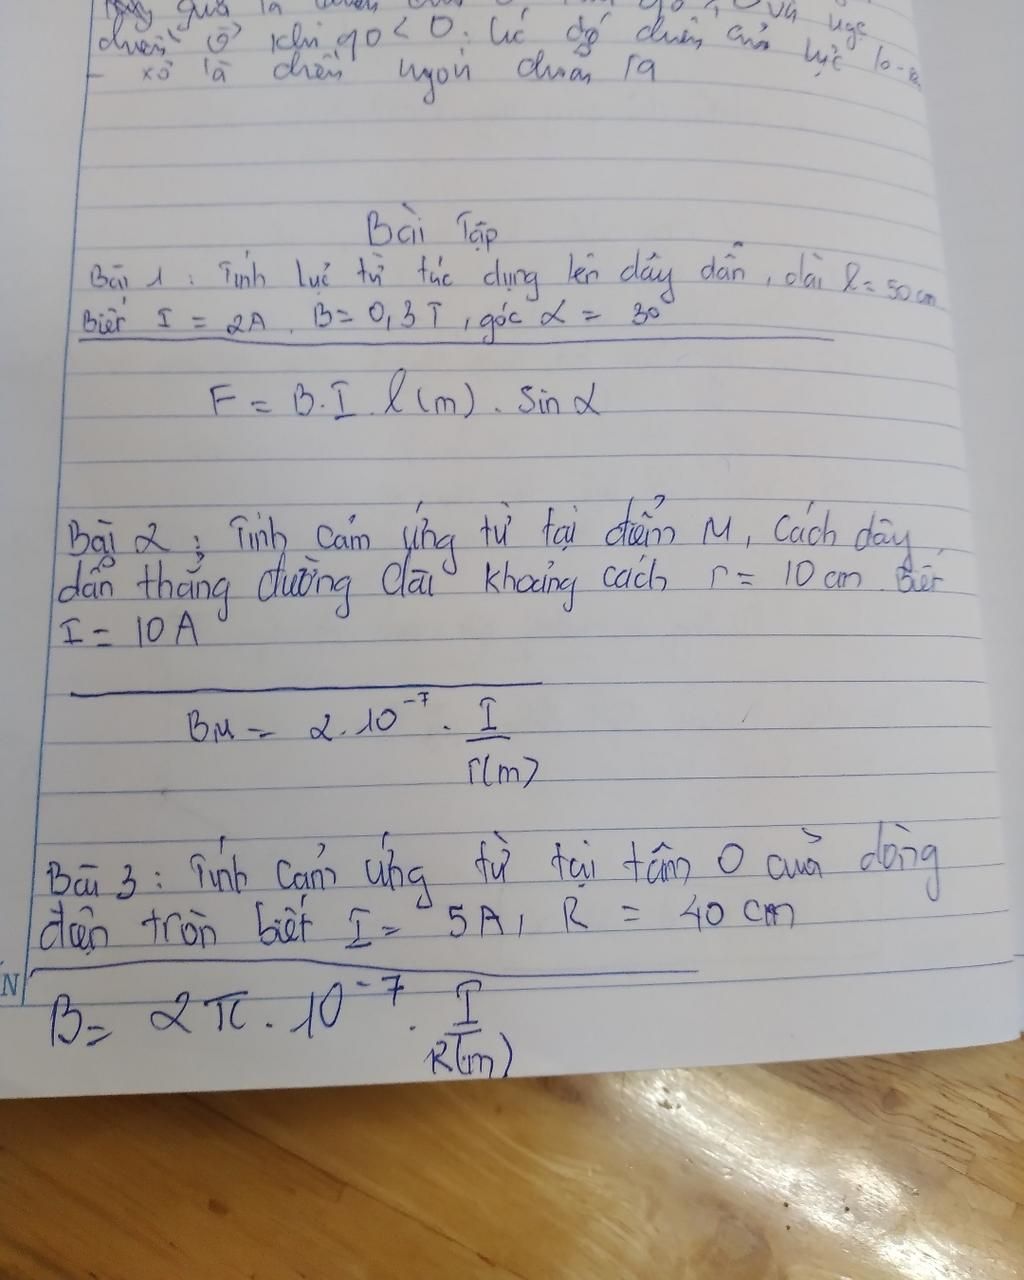 chiều khi q0 < 0. lúc đó chiều của lực lo-
- xơ là chiều ngón choãi ra
Bài Tập
Bài 1 : Tính lực từ tác dụng lên dây dẫn, dài l = 50 cm
Biết I = 2A, B = 0,3 T, góc α = 30°
F = B.I.l(m).sin α
Bài 2 : Tính cảm ứng từ tại điểm M, cách dây
dẫn thẳng đường dài khoảng cách r = 10 cm Biết
I = 10 A
BM = 2.10⁻⁷ . I
r(m)
Bài 3 : Tính cảm ứng từ tại tâm O cuả dòng
điện tròn biết I = 5A, R = 40 cm
N
B = 2π.10⁻⁷ . I
R(m)